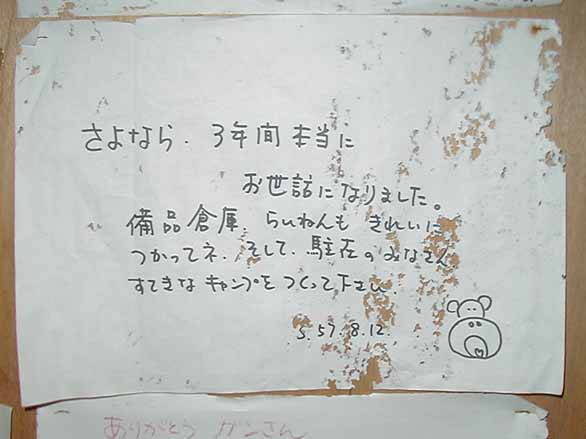 さよなら. 3年間 本当に
お世話になりました。
備品倉庫 らいねんも きれいに
つかってネ. そして. 駐在のみなさん
すてきな キャンプをつくって下さい.
S.57.8.12.
ありがとう ガンさん